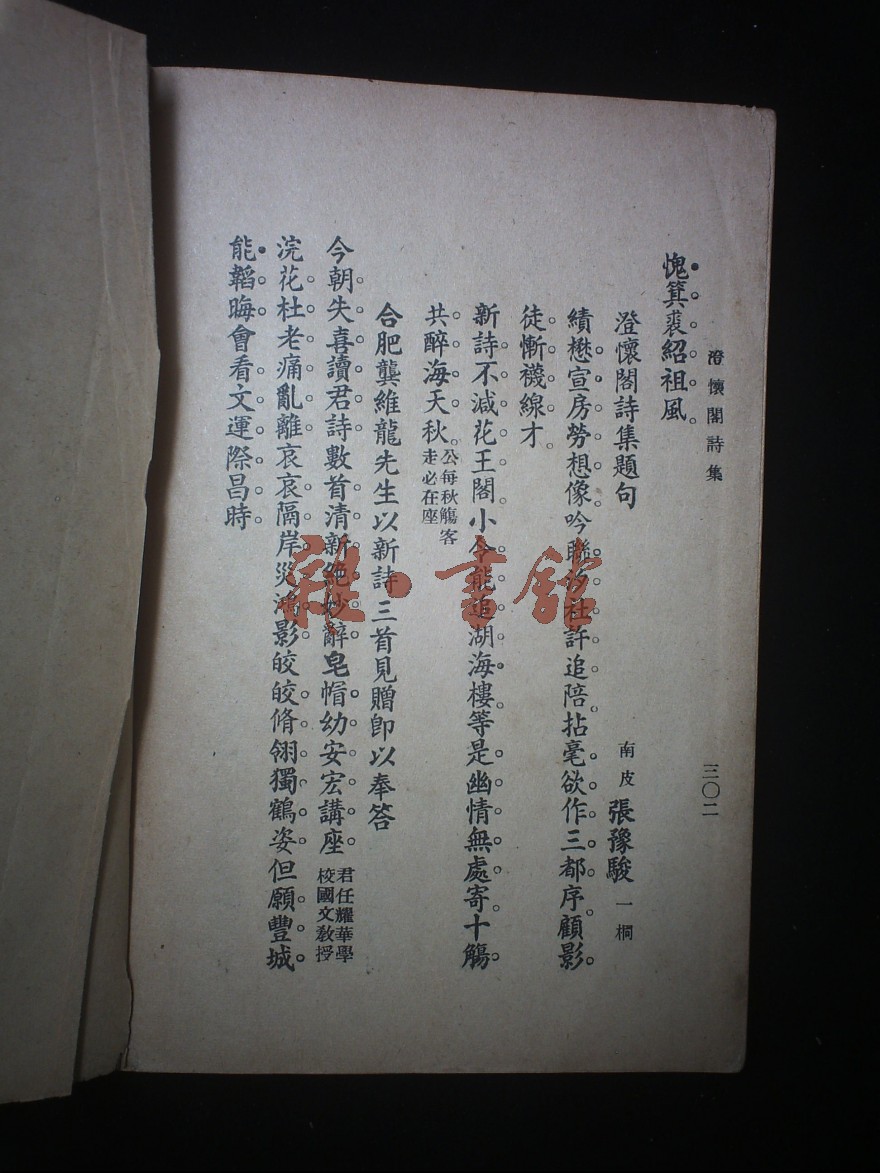 澄懷閣詩集
三〇二
愧箕裘紹祖風。
澄懷閣詩集題句
南皮 張豫駿 一桐
績懋宣房勞想像吟聯汐社許追陪拈毫欲作三都序顧影
徒慚襪線才。
新詩不減花王閣小令能追湖海樓等是幽情無處寄十觴
共醉海天秋。公每秋觴客走必在座
合肥龔維龍先生以新詩三首見贈卽以奉答
今朝失喜讀君詩數首清新絶妙辭皂帽幼安宏講座君任耀華學校國文教授
浣花杜老痛亂離哀哀隔岸災鴻影皎皎脩翎獨鶴姿但願豐城
能韜晦會看文運際昌時。
雜·書館